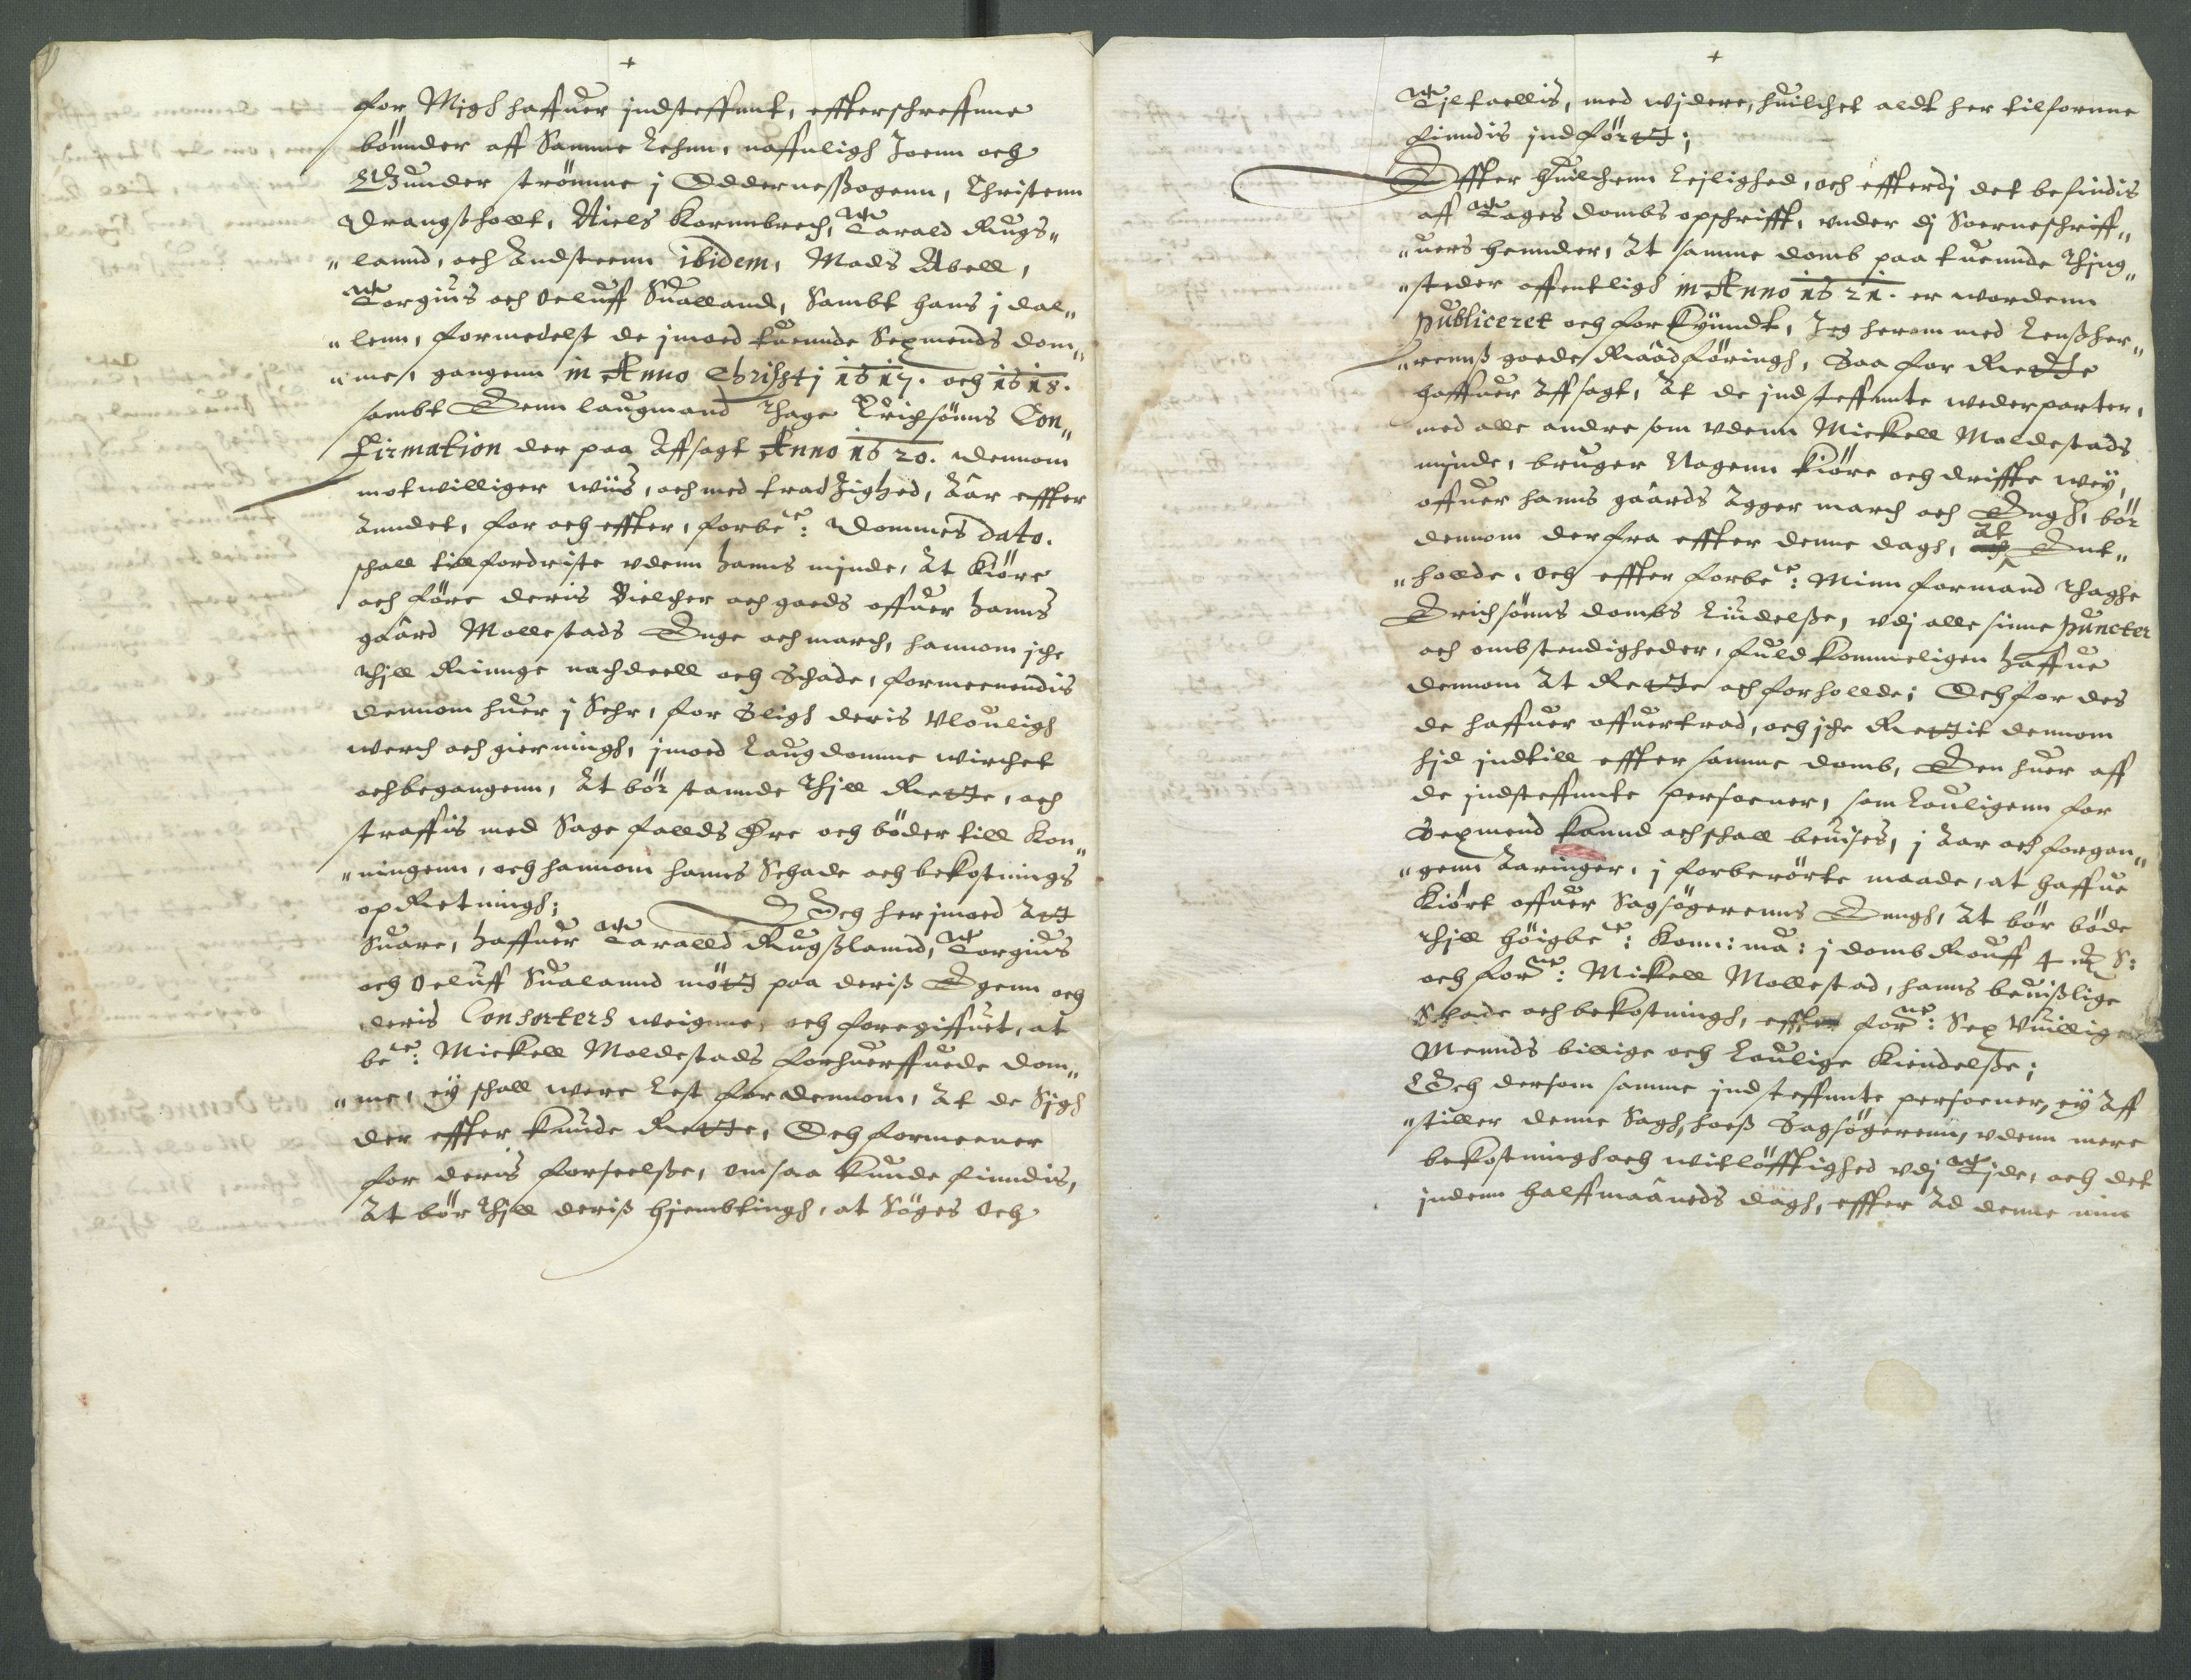 +
for Migh haffuer jndsteffnnt, effterschreffnne
bönnder aff Samme Lehnn, naffnligh Joenn och
Gunder strömme j Oddernessogenn, Christenn
Drangßhollt, Niels Kornnbrech, Tarald Rugs„
„lannd, och Andstenn ibidem, Mads Abell,
Torgius och Oeluff Sualland, Sambt hans j dal„
„lenn, formedelst de jmoed tuennde Sexmends dom„
„me, gangenn in Anno Christj 1617. och 1618.
sambt Denn laugmand Thage Erichsönns Con„
firmation der paa Affsagt Anno 1620. dennom
motwilliger wiis, och med tradzighed, Aar effter
Anndet, for och effter, forbe:te dommes dato.
schall tillfordriste vdenn hanns minde, At kiöre
och före deris Bielcher och goeds offuer hanns
gaard Mollestads Enge och march, hannom jche
Thill Ringe nachdeell och Schade, formeenendis
dennom huer j Sehr, for Sligh deris Vlouligh
werch och gierningh, jmoed Laugdomme wirchet
och begangenn, At bör stannde Thill Rette, och
straffis med Sage falds Öre och böder till Kon„
„ningenn, och hannom hanns Schade och bekostnings
opRetningh; Och her jmoed Att
Suare, haffuer Taralld Rugßlannd, Torgius
och Oeluff Sualannd mött paa deriß Egenn och
deris Consorters weignne, och foregiffuet, at
be:te Mickell Moldestads forhuerffuede dom„
„me, ey schall were Lest for dennom, At de Sigh
der effter kunde Rette, Och formeener
for deris forseelße, om saa kunde finndis,
At bör Thill deriß hiembtingh, at Söges Och
+
Tiltaellis, med widere, huilchet aldt her tilfornne
finndis jndfört;
Effter huilchenn Leilighed, och effterdj det befindis
aff Tages dombs opschrifft, vnder dj Soerneschriff„
„uers hennder, At samme domb paa tuennde Thing„
„steder offentligh in Anno 1621. er wordenn
publiceret och forkyndt, Jeg herom med Lenßher„
„rennß goede Raadföringh, Saa for Rette
haffuer Affsagt, At de jndsteffnnte wederparter,
med alle andre som vdenn Mickell Moldestads
minde, bruger Nogenn kiöre och driffte wey,
offuer hanns gaards Agger march och Engh, bör
dennom derfra effter denne dagh, At Ent„
„hollde, och effter forbe:te Minn formand Thaghe
Erichsönns dombs Liudelße, vdj alle sinne puncter
och ombstendigheder, fuldkommeligen haffue
dennom At Rette och forhollde; Och for des
de haffuer offuertrad, och jche Rettit dennom
hid jndtill effter samme domb, Den huer aff
de jndsteffnnte persoener, som Louligenn for
Sexmend kannd och schall beuises, j Aar och forgan„
„genn Aaringer, j forberörte maade, at haffue
kiört offuer Sagsögerenns Enngh, At bör böde
Thill höigbe:te Konn: ma: j domb Rouff 4 S:
och for:ne Mickell Mollestad, hanns beuißlige
Schade och bekostningh, effter for:ne Sex Vuillige
Mennds billige och Loulige kiendelße;
Och dersom samme jndsteffnnte persoener, ey Aff
„stiller denne Sagh, hoeß Sagsögerenn, vdenn mere
bekostningh och witlöfftighed vdj Tide, och det
jndenn halffmaaneds dagh, effter Ad denne min